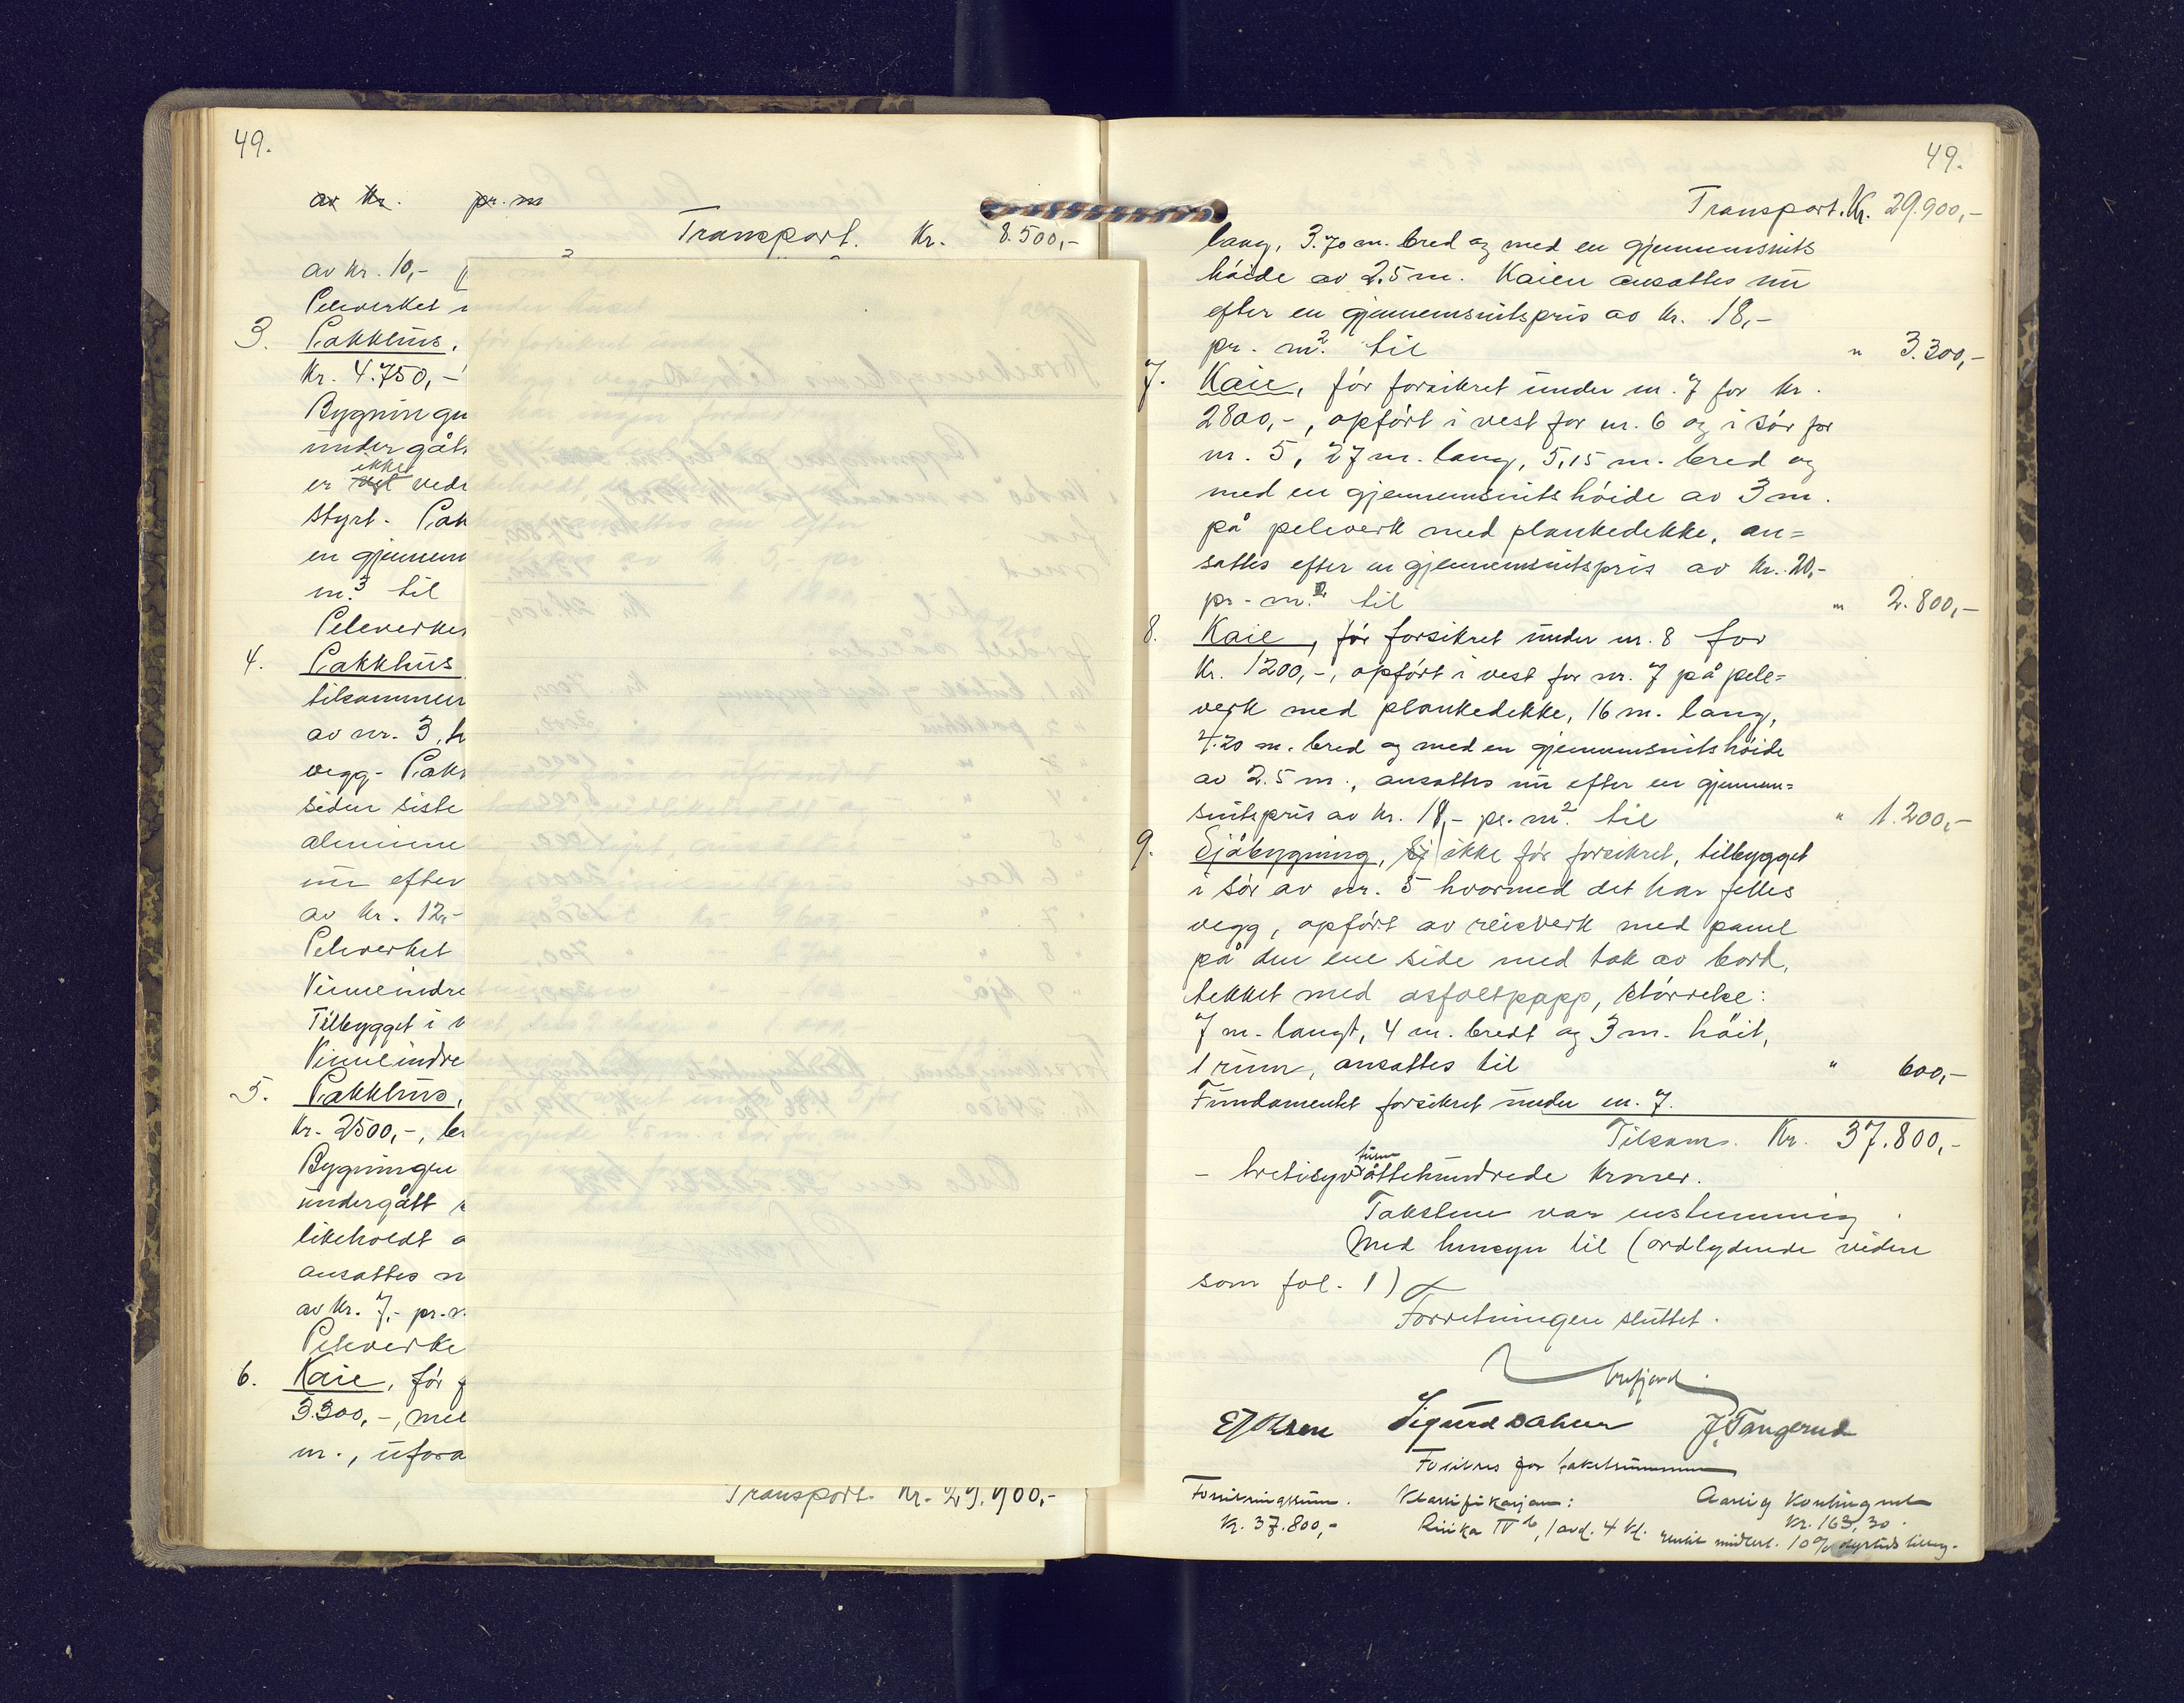 49.
av kr. pr. m
Transport. Kr. 8.500,-
av kr. 10,-
Peleverket
3. Pakkhus,
Kr. 4.750,-
Bygningen
undergåt
ikke
er vedt
styrt. Pak
en gjennem
m.³ til
Peleverket
4. Pakkhus
tilsammen
av nr. 3, h
vegg. Pak
siden siste
alminne
nu efter
av kr. 12,-
Peleverket
Vinneindre
Tilbygget i v
Vinneindre
5. Pakkhus,
Kr. 2500,-, be
Bygningen
undergått
likeholdt
ansattes n
av kr. 7,- pr.
Peleverke
6. Kaie, før f
3.300,-, mel
m., ufora
Transport Kr. 29.900,-
49.
Transport. Kr. 29.900,-
lang, 3.70 m. bred og med en gjennemsnits
høide av 2.5 m. Kaien ansattes nu
efter en gjennemsnitspris av kr. 18,-
pr. m.² til " 3.300,-
7. Kaie, før forsikret under nr. 7 for kr.
2800,-, opført i vest for nr. 6 og i sør for
nr. 5, 27 m. lang, 5,15 m. bred og
med en gjennemsnitshøide av 3 m.
på peleverk med plankedekke, an=
sattes efter en gjennemsnitspris av kr. 20,-
pr. m.² til " 2.800,-
8. Kaie, før forsikret under nr. 8 for
Kr. 1200,-, opført i vest for nr. 7 på pele=
verk med plankedekke, 16 m. lang,
4.20 m. bred og med en gjennemsnitshøide
av 2.5 m., ansattes nu efter en gjennem=
snitspris av kr. 18,- pr. m.² til " 1.200,-
9. Sjåbygning, Sj ikke før forsikret, tilbygget
i sør av nr. 5 hvormed det har felles
vegg, opført av reisverk med panel
på den ene side med tak av bord,
tekket med asfaltpapp, størrelse:
7 m. langt, 4 m. bredt og 3 m. høit,
1 rum, ansattes til " 600,-
Fundamentet forsikret under nr. 7.
Tilsams. Kr. 37.800,-
tusen
- tretisyv åttehundrede kroner.
Takstene var enstemmig.
Med hensyn til (ordlydende videre
som fol. 1)
Forretningen sluttet.
E J Olsen Sigurd Dahl J. Tangerud
Forsikres for takstsummen
Forsikringssum. Klassifikasjon: Aarlig Kontingent
Kr. 37.800,- Risiko IV b, 1 avd. 4 kl. Kr. 163,30.
midlert. 10% dyrtidstilleg.